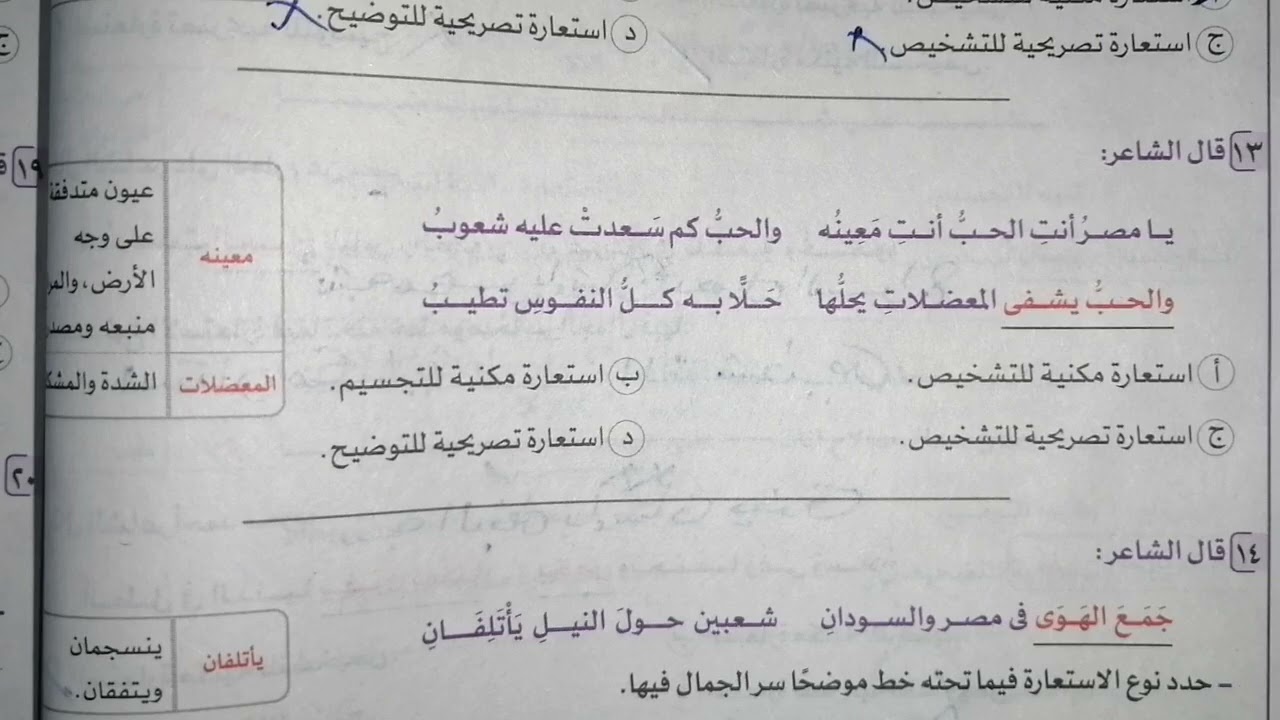 ج استعارة تصريحية للتشخيص.
د استعارة تصريحية للتوضيح.
١٣ قال الشاعر:
يا مصرُ أنتِ الحبُّ أنتِ مَعِينُه والحبُّ كم سَعدتْ عليه شعوبُ
والحبُّ يشفى المعضلاتِ يحلُّها حَلًّا به كلُّ النفوسِ تطيبُ
معينه
عيون متدفقة
على وجه
الأرض، والمر
منبعه ومصد
المعضلات
الشدة والمشك
أ استعارة مكنية للتشخيص.
ب استعارة مكنية للتجسيم.
ج استعارة تصريحية للتشخيص.
د استعارة تصريحية للتوضيح.
١٤ قال الشاعر:
جَمَعَ الهَوَى فى مصر والسودانِ شعبين حولَ النيلِ يَأْتَلِفَانِ
يأتلفان
ينسجمان
ويتفقان.
- حدد نوع الاستعارة فيما تحته خط موضحًا سر الجمال فيها.
ج
١٩
٢٠